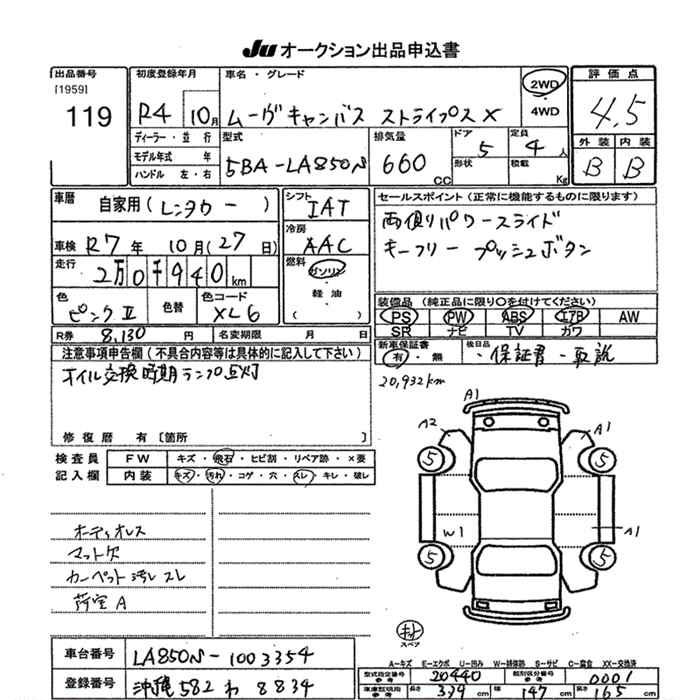 JU オークション出品申込書
出品番号 [1959] 119
初度登録年月 R4 10月
車名・グレード ムーヴキャンバス ストライプス X
2WD
4WD
評価点 4.5
外装 B 内装 B
ディーラー・並行
モデル年式 年
ハンドル 左・右
型式 5BA-LA850S
排気量 660 CC
ドア 5
形状
定員 4 人
積載 Kg
車暦 自家用(レンタカー)
シフト IAT
セールスポイント(正常に機能するものに限ります)
両側パワースライド
キーフリー プッシュボタン
車検 R7年 10月(27日)
冷房 AAC
走行 2万0千940km
燃料 ガソリン
・軽油・
( )
色 ピンクII
色替
色コード XL6
装備品(純正品に限り○を付けてください)
PS PW ABS エアB AW
SR ナビ TV カワ
R券 8,130 円
名変期限 月 日
新車保証書 有・無
後日品 ・保証書・取説
注意事項申告欄(不具合内容等は具体的に記入して下さい)
オイル交換時期ランプ点灯
20,932km
修復歴 有[箇所 ]
検査員 FW キズ・飛石・ヒビ割・リペア跡・×要
記入欄 内装 キズ・汚れ・コゲ・穴・スレ・キレ・破レ
A1
A2
A1
5
5
W1
A1
5
5
オーディオレス
マット欠
カーペット汚レ スレ
荷室A
キット
スペア
車台番号 LA850S-1003354
A-キズ E-エクボ U-凹み W-補修跡 S-サビ C-腐食 XX-交換済
型式指定番号 参考 20440
類別区分番号 参考 0001
登録番号 沖縄 582 わ 8834
車庫証明用 参考 長さ 339 cm 幅 147 cm 高さ 165 cm